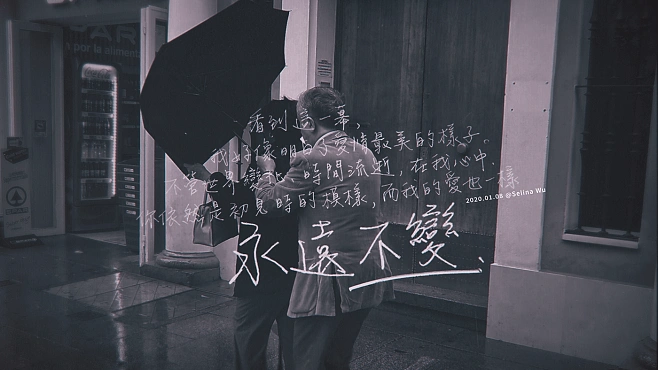 AR
s por la alimenta
看到這一幕，
我好像明白了愛情最美的樣子。
不管世界變化、時間流逝，在我心中，
你依然是初見時的模樣，而我的愛也一樣
2020.01.08 @Selina Wu
永遠不變.